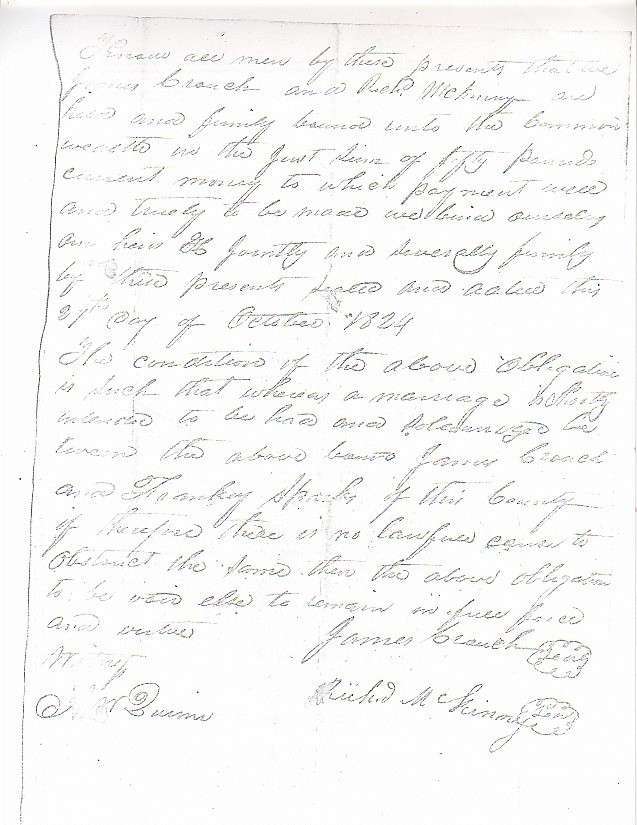 Know all men by these presents that we
James Crouch and Richd McKinney are
held and firmly bound unto the Common
wealth in the Just sum of fifty pounds
current money to which payment well
and truely to be made we bind ourselves
our heirs &c Jointly and severally firmly
by these presents sealed and dated this
day of October 1824
The condition of the above Obligation
is such that whereas a marriage is shortly
intended to be had and solemnized be
tween the above bound James Crouch
and Thankey Sparks of this County
if therefore there is no lawfull cause to
obstruct the same then the above obligation
to be void else to remain in full force
and virtue
James Crouch Seal
Witness
Richd McKinney Seal